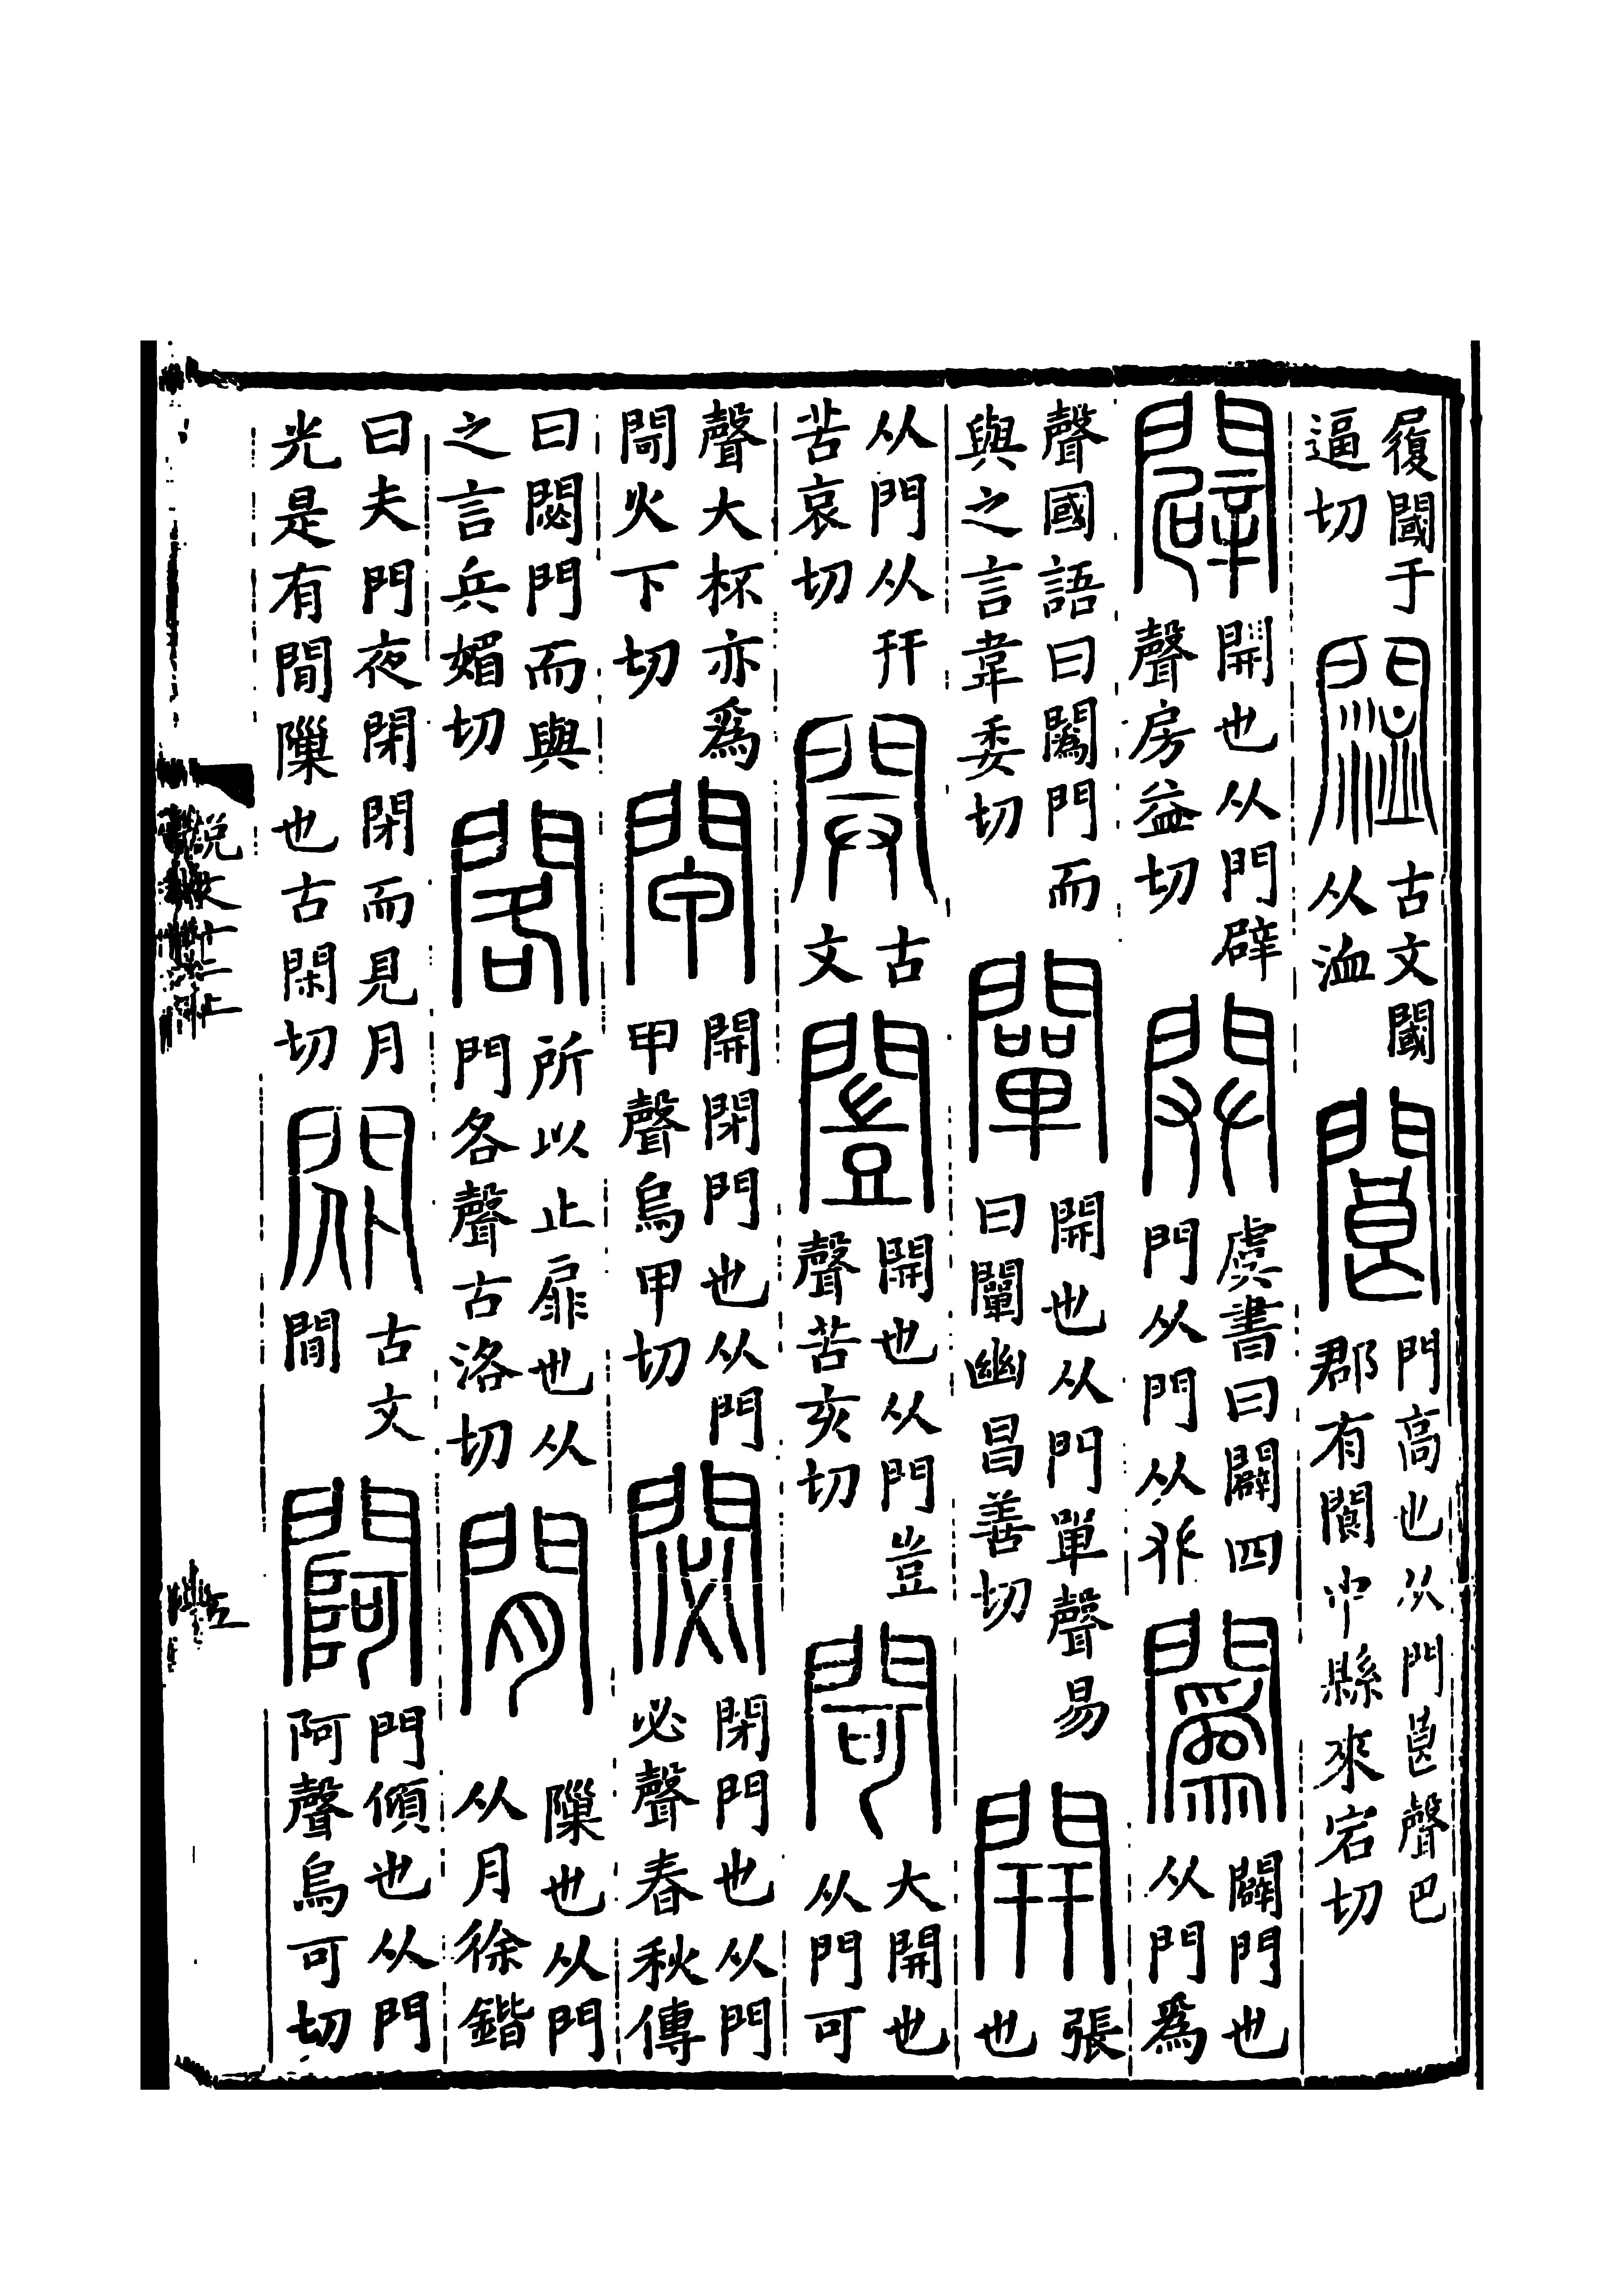 履閾于逼切䦗古文閾从洫閬門高也从門㫐聲巴郡有閬中縣來宕切
闢開也从門辟聲房益切𨳿虞書曰闢四門从門从𠬜䦱闢門也从門爲
聲國語曰䦱門而與之言韋委切闡開也从門單聲易曰闡幽昌善切開張也
从門从幵苦哀切古文闓開也从門豈聲苦亥切閜大開也从門可
聲大杯亦爲閜火下切閘開閉門也从門甲聲烏甲切閟閉門也从門必聲春秋傳
曰閟門而與之言兵媚切閣所以止扉也从門各聲古洛切閒隟也从門从月徐鍇
曰夫門夜閉閉而見月光是有閒隟也古閑切古文閒䦪門傾也从門阿聲烏可切
説文十二上 五